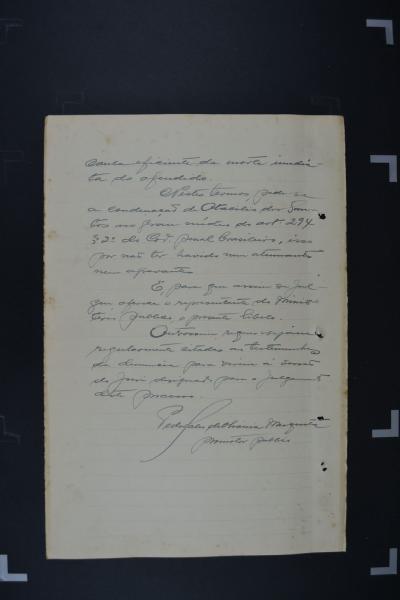 causa efficiente da morte immedia-
ta do offendido.
Nestes termos, pede-se
a condenação de Otacilio dos San-
tos no grau médio do artº 294
§ 2º do Cod. penal brasileiro, isso
por não ter havido nem attenuante
nem aggravante.
E, para que assim se jul-
gue offerece o representante do Minis-
terio Publico o presente libello.
Outrosim, requer sejam
regularmente citadas as testemunhas
da denuncia para virem á sessão
do Jury designada para o julgamento
deste processo.
Pedro de Mesquita
promotor publico